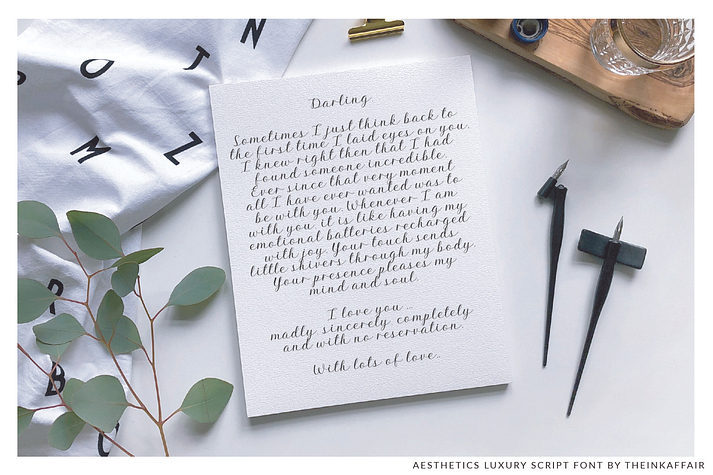 N
O
J
M
Z
R
B
Darling
Sometimes I just think back to
the first time I laid eyes on you.
I knew right then that I had
found someone incredible.
Ever since that very moment
all I have ever wanted was to
be with you. Whenever I am
with you, it is like having my
emotional batteries recharged
with joy. Your touch sends
little shivers through my body.
Your presence pleases my
mind and soul.
I love you ..
madly, sincerely, completely
and with no reservation.
With lots of love..
AESTHETICS LUXURY SCRIPT FONT BY THEINKAFFAIR